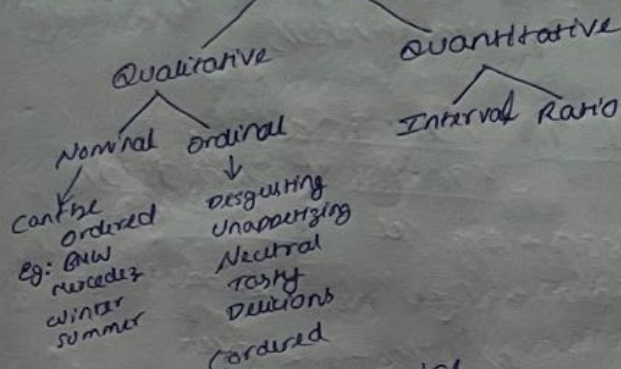 Qualitative Quantitative
Nominal Ordinal Interval Ratio
Can't be
ordered
Eg: BMW
Mercedez
Winter
Summer
Disgusting
Unappetizing
Neutral
Tasty
Delicious
(ordered